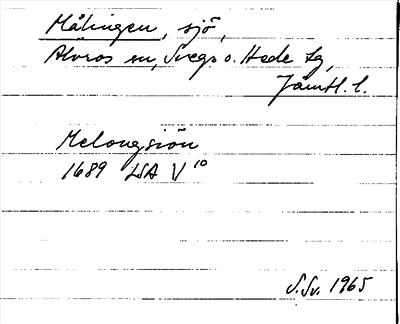 Målingen, sjö,
Alvros sn, Svegs o. Hede tg,
Jämtl. l.
Melongsiön
1689 LSA V 10
S. Sv. 1965